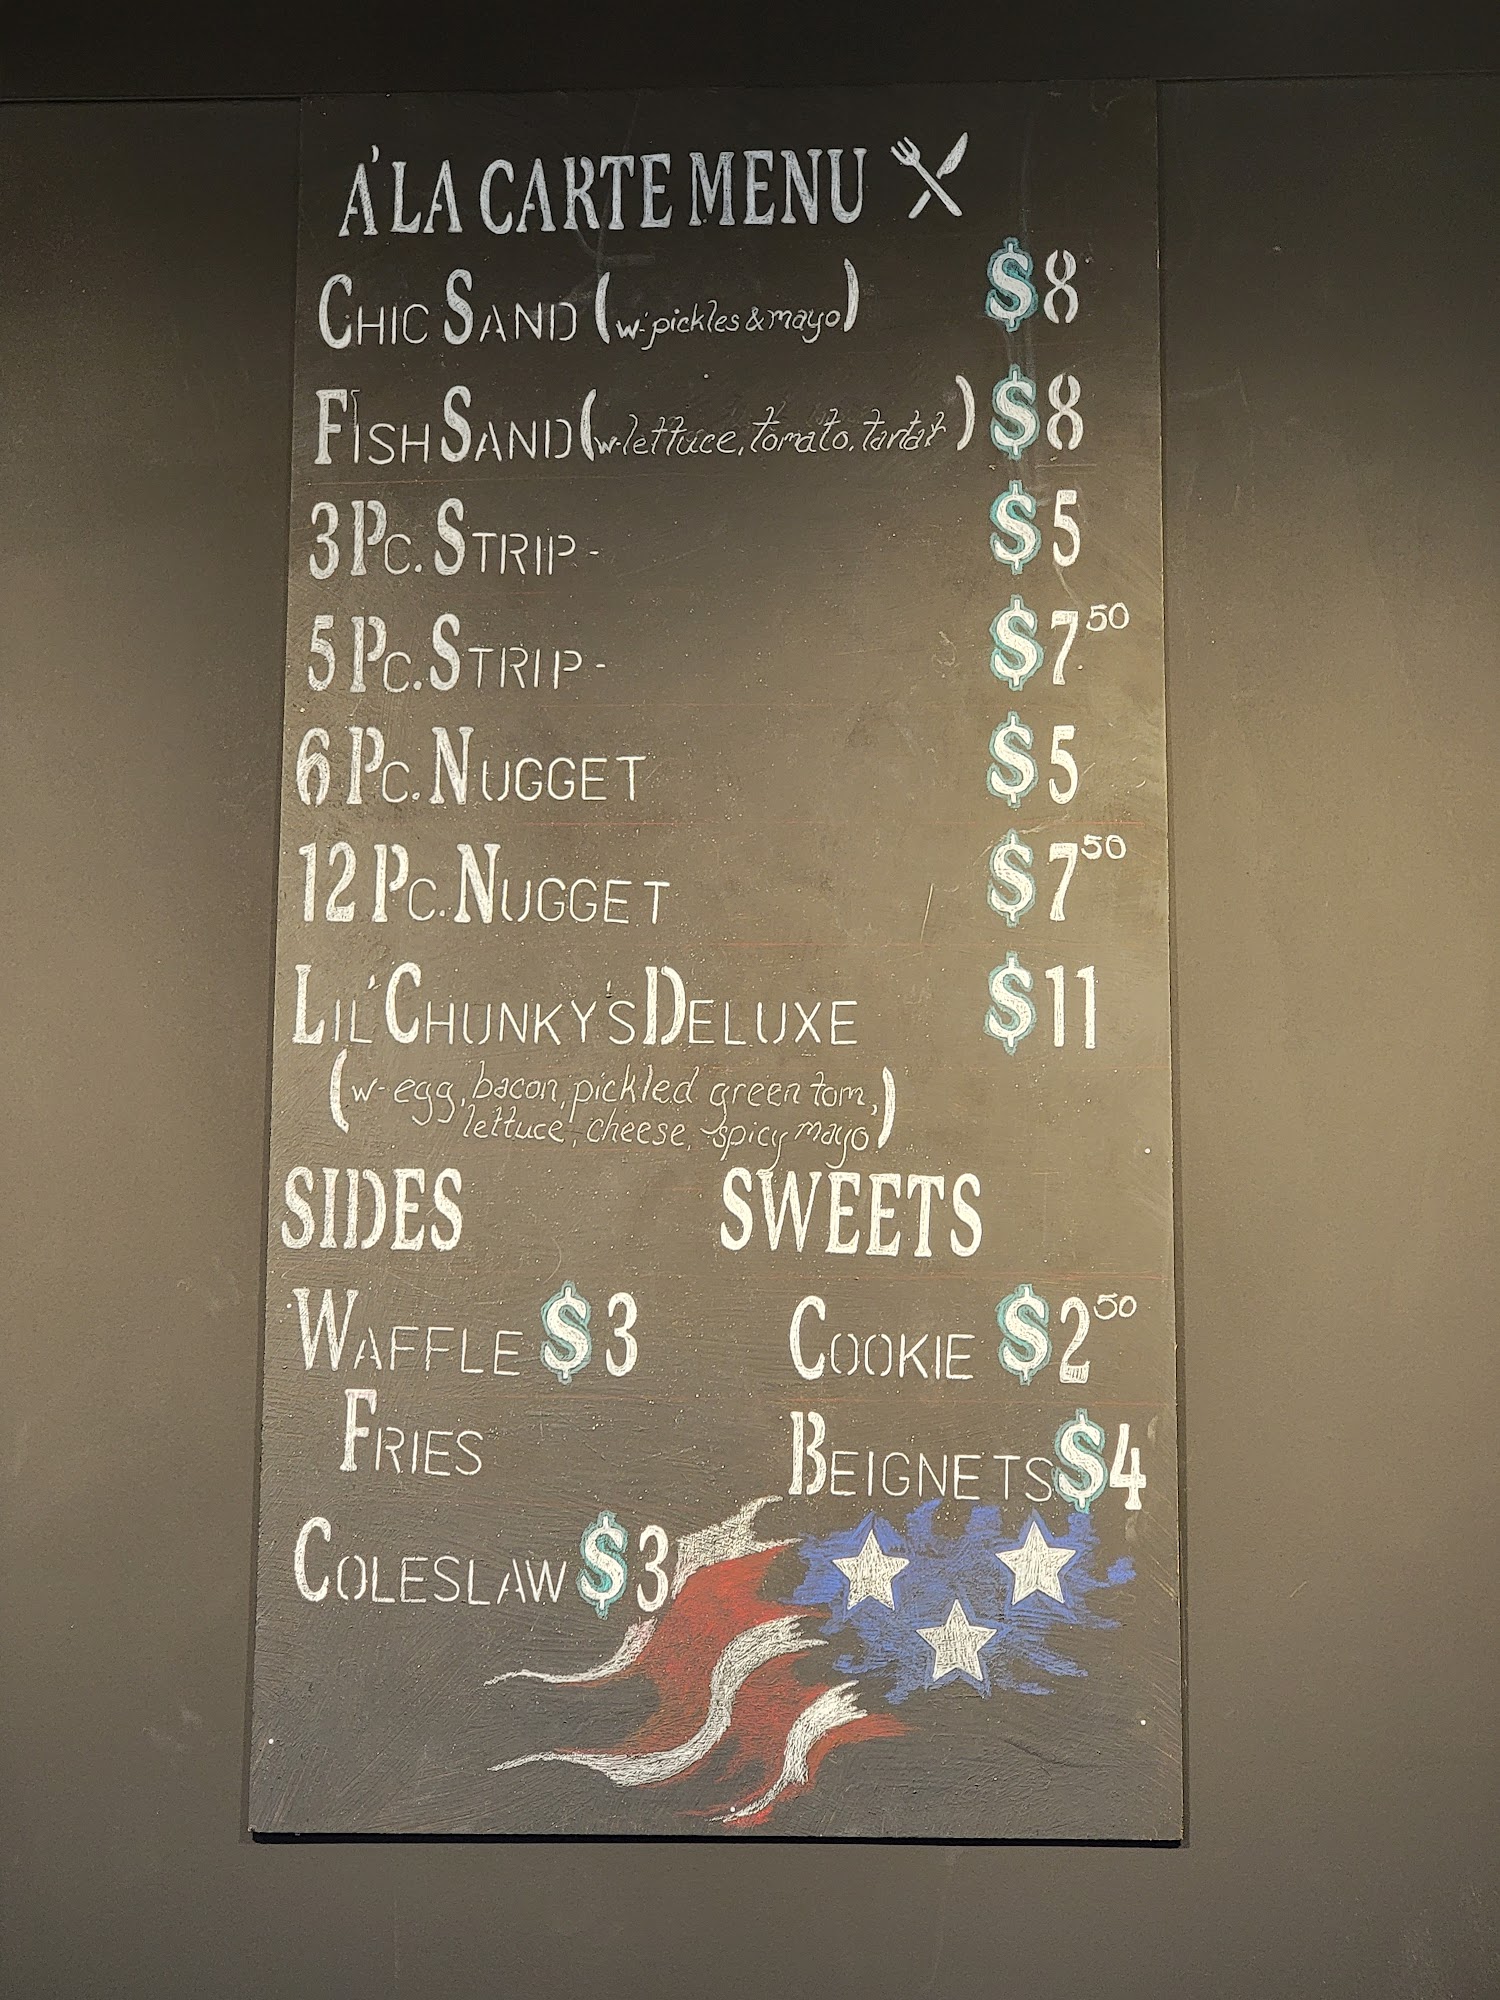 A'LA CARTE MENU
CHIC SAND (w- pickles & mayo) $8
FISH SAND (w-lettuce, tomato, tartar) $8
3 PC. STRIP - $5
5 PC. STRIP - $7 50
6 PC. NUGGET $5
12 PC. NUGGET $7 50
LIL' CHUNKY'S DELUXE $11
(w- egg, bacon, pickled green tom,
lettuce, cheese, spicy mayo)
SIDES
WAFFLE $3
FRIES
COLESLAW $3
SWEETS
COOKIE $2 50
BEIGNETS $4